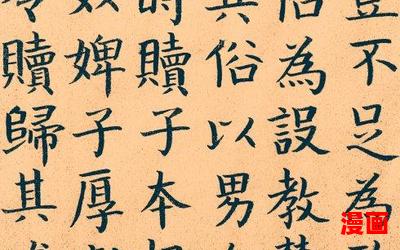 豈不足為
為設教
其俗以男
時贖子本
婢子厚
贖歸其
漫画